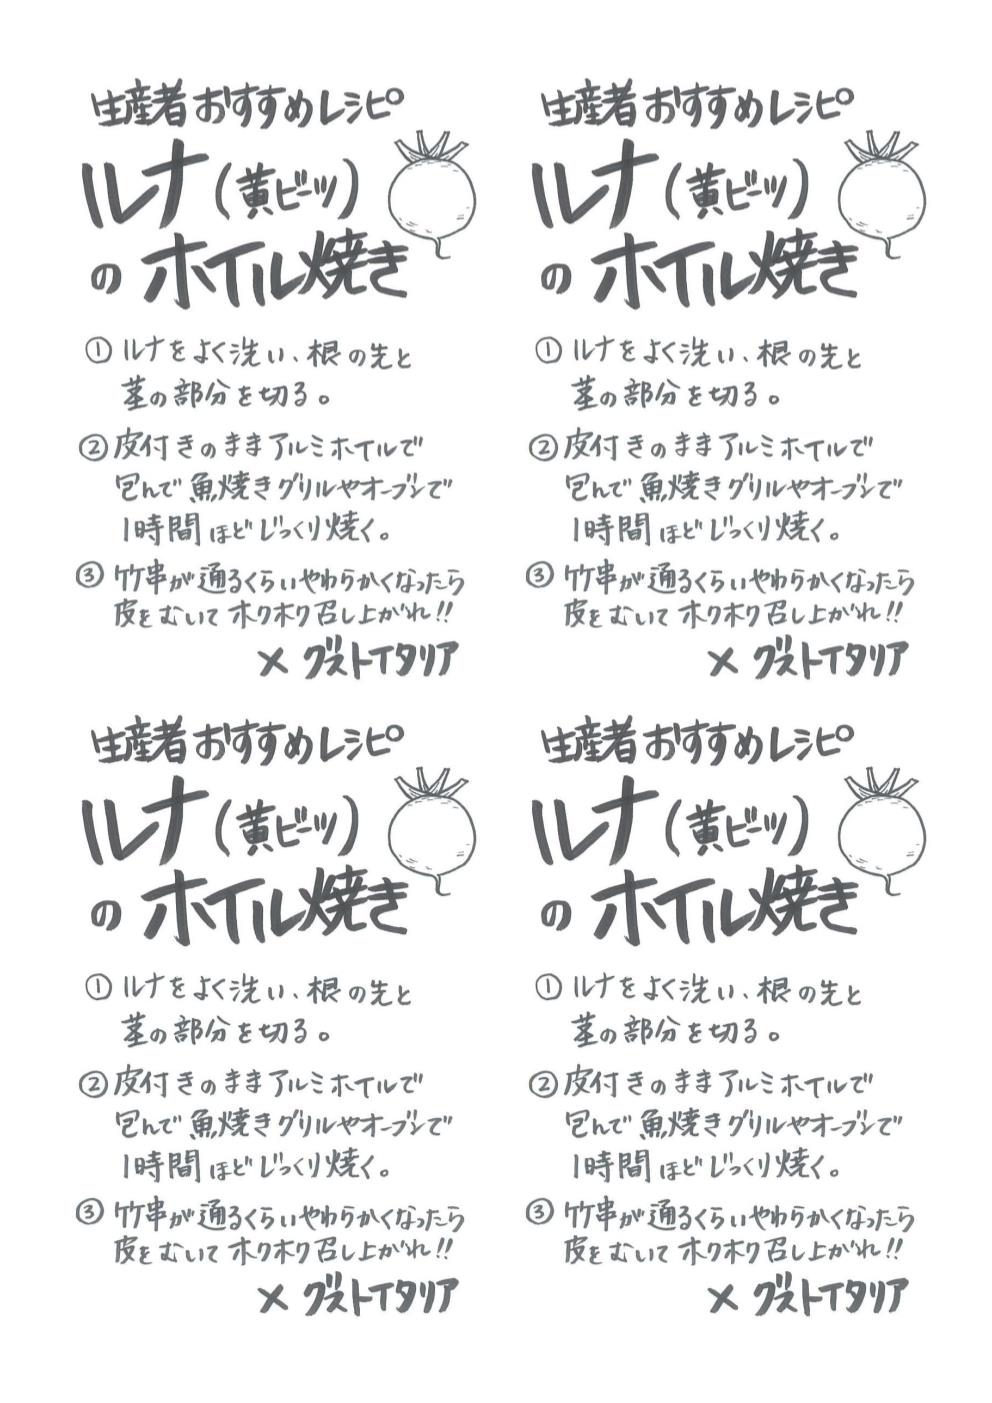 生産者おすすめレシピ
ルナ(黄ビーツ)
のホイル焼き
①ルナをよく洗い、根の先と
茎の部分を切る。
②皮付きのままアルミホイルで
包んで魚焼きグリルやオーブンで
1時間ほどじっくり焼く。
③竹串が通るくらいやわらかくなったら
皮をむいてホクホク召し上がれ!!
×グストイタリア
生産者おすすめレシピ
ルナ(黄ビーツ)
のホイル焼き
①ルナをよく洗い、根の先と
茎の部分を切る。
②皮付きのままアルミホイルで
包んで魚焼きグリルやオーブンで
1時間ほどじっくり焼く。
③竹串が通るくらいやわらかくなったら
皮をむいてホクホク召し上がれ!!
×グストイタリア
生産者おすすめレシピ
ルナ(黄ビーツ)
のホイル焼き
①ルナをよく洗い、根の先と
茎の部分を切る。
②皮付きのままアルミホイルで
包んで魚焼きグリルやオーブンで
1時間ほどじっくり焼く。
③竹串が通るくらいやわらかくなったら
皮をむいてホクホク召し上がれ!!
×グストイタリア
生産者おすすめレシピ
ルナ(黄ビーツ)
のホイル焼き
①ルナをよく洗い、根の先と
茎の部分を切る。
②皮付きのままアルミホイルで
包んで魚焼きグリルやオーブンで
1時間ほどじっくり焼く。
③竹串が通るくらいやわらかくなったら
皮をむいてホクホク召し上がれ!!
×グストイタリア